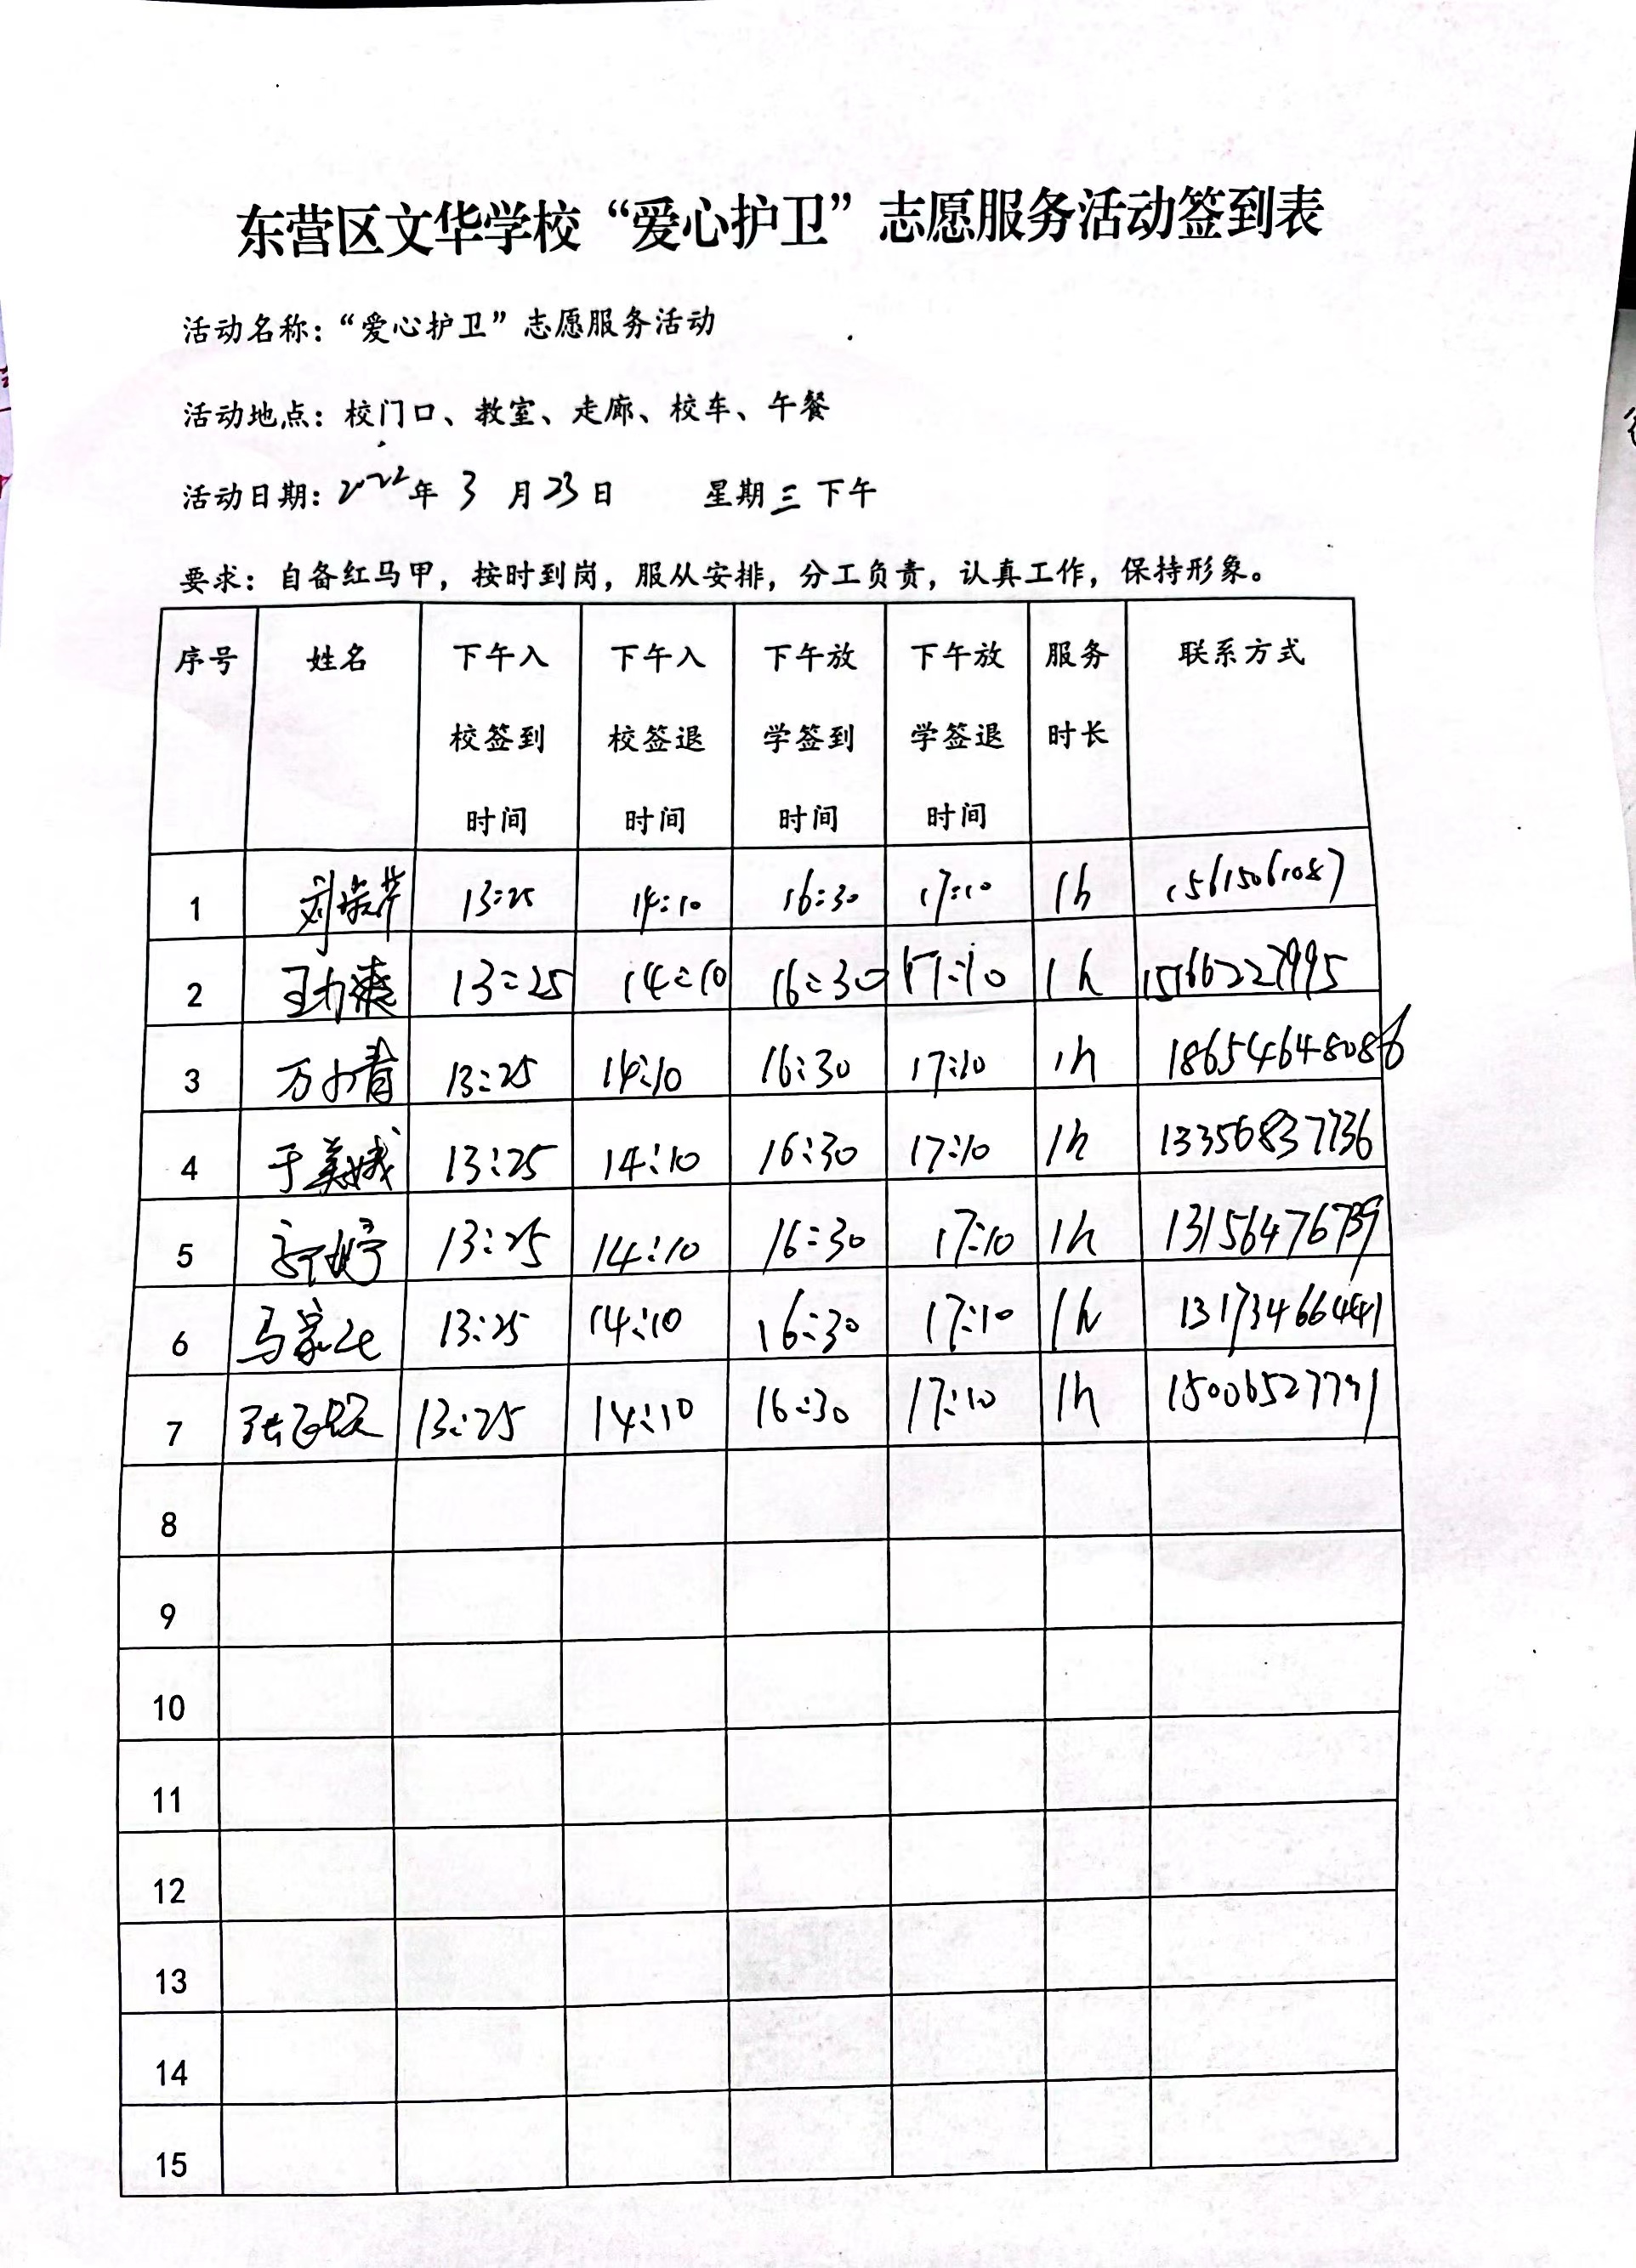 东营区文华学校“爱心护卫”志愿服务活动签到表
活动名称：“爱心护卫”志愿服务活动
活动地点：校门口、教室、走廊、校车、午餐
活动日期：2022年 3 月 23 日 星期三下午
要求：自备红马甲，按时到岗，服从安排，分工负责，认真工作，保持形象。
序号 姓名 下午入校签到时间 下午入校签退时间 下午放学签到时间 下午放学签退时间 服务时长 联系方式
1 13:25 14:10 16:30 17:10 1h 15615061087
2 13:25 14:10 16:30 17:10 1h
3 万小青 13:25 14:10 16:30 17:10 1h 18654648086
4 于美娥 13:25 14:10 16:30 17:10 1h 13356837736
5 13:25 14:10 16:30 17:10 1h 13156476739
6 13:25 14:10 16:30 17:10 1h 13173466441
7 13:25 14:10 16:30 17:10 1h
8
9
10
11
12
13
14
15